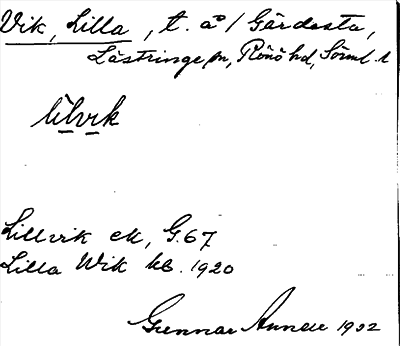 Vik, Lilla, t. å / Gärdesta,
Lästringe sn, Rönö hd, Sörml. l
lìlvik
Lillvik ek, G.67
Lilla Wik kb. 1920
Gunnar Annell 1932